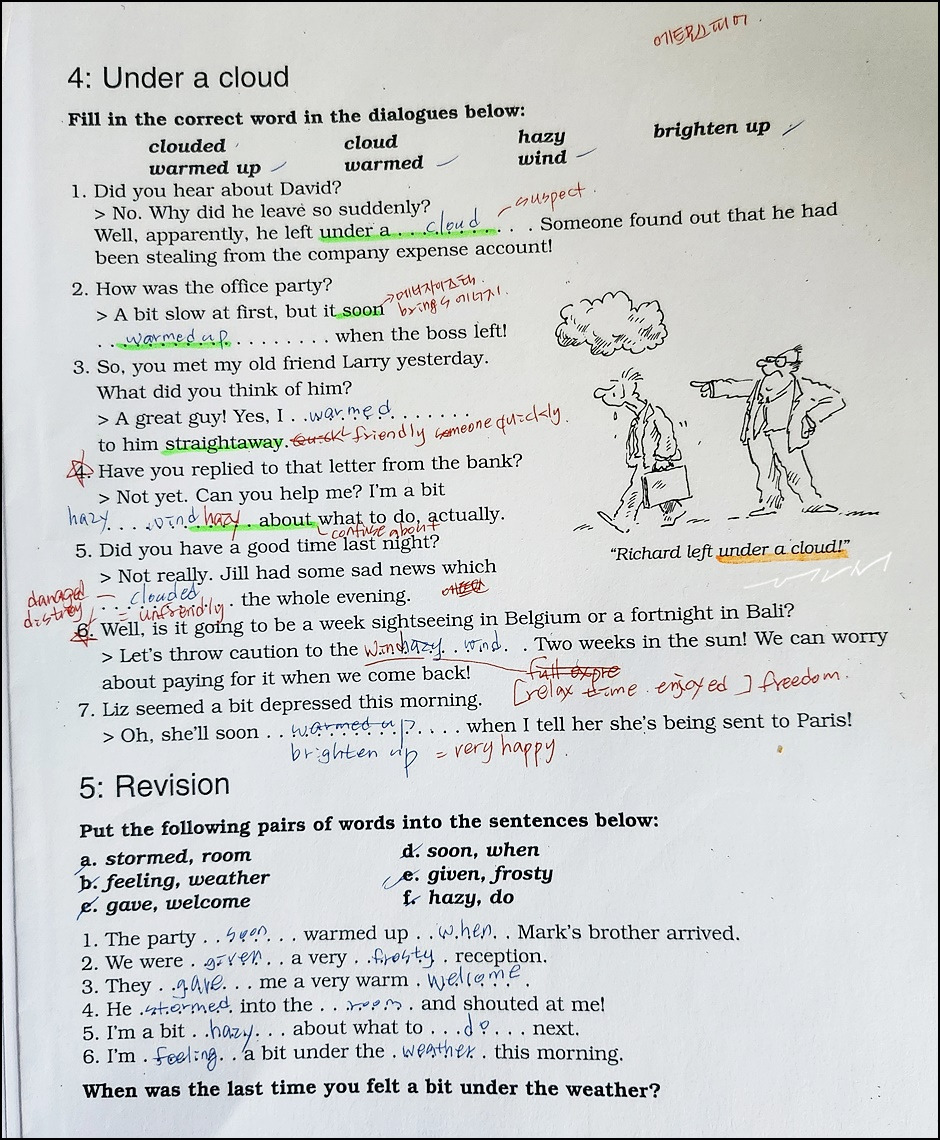 에트모스피어
4: Under a cloud
Fill in the correct word in the dialogues below:
clouded cloud hazy brighten up
warmed up warmed wind
1. Did you hear about David?
> No. Why did he leave so suddenly?
suspect.
Well, apparently, he left under a . . . cloud . . . . Someone found out that he had
been stealing from the company expense account!
2. How was the office party?
> A bit slow at first, but it soon
bring 에너지.
. . warmed up . . . . . . . . when the boss left!
3. So, you met my old friend Larry yesterday.
What did you think of him?
> A great guy! Yes, I . . warmed . . . . . . .
to him straightaway. quick friendly someone quickly.
4. Have you replied to that letter from the bank?
> Not yet. Can you help me? I'm a bit
hazy . . . . wind hazy . about what to do, actually.
confuse about
5. Did you have a good time last night?
> Not really. Jill had some sad news which
damaged
. . . clouded . . . the whole evening.
distroy = unfrendly
6. Well, is it going to be a week sightseeing in Belgium or a fortnight in Bali?
> Let's throw caution to the wind hazy . . wind . . Two weeks in the sun! We can worry
about paying for it when we come back! full expre
[relax time enjoyed] freedom.
7. Liz seemed a bit depressed this morning.
> Oh, she'll soon . . warmed up . . . . when I tell her she's being sent to Paris!
brighten up = very happy.
"Richard left under a cloud!"
5: Revision
Put the following pairs of words into the sentences below:
a. stormed, room d. soon, when
b. feeling, weather e. given, frosty
c. gave, welcome f. hazy, do
1. The party . . soon . . . warmed up . . when . . Mark's brother arrived.
2. We were . given . . a very . . frosty . reception.
3. They . . gave . . . me a very warm . welcome .
4. He . stormed . into the . . . room . and shouted at me!
5. I'm a bit . . hazy . . . about what to . . . do . . . next.
6. I'm . feeling . . a bit under the . weather . this morning.
When was the last time you felt a bit under the weather?